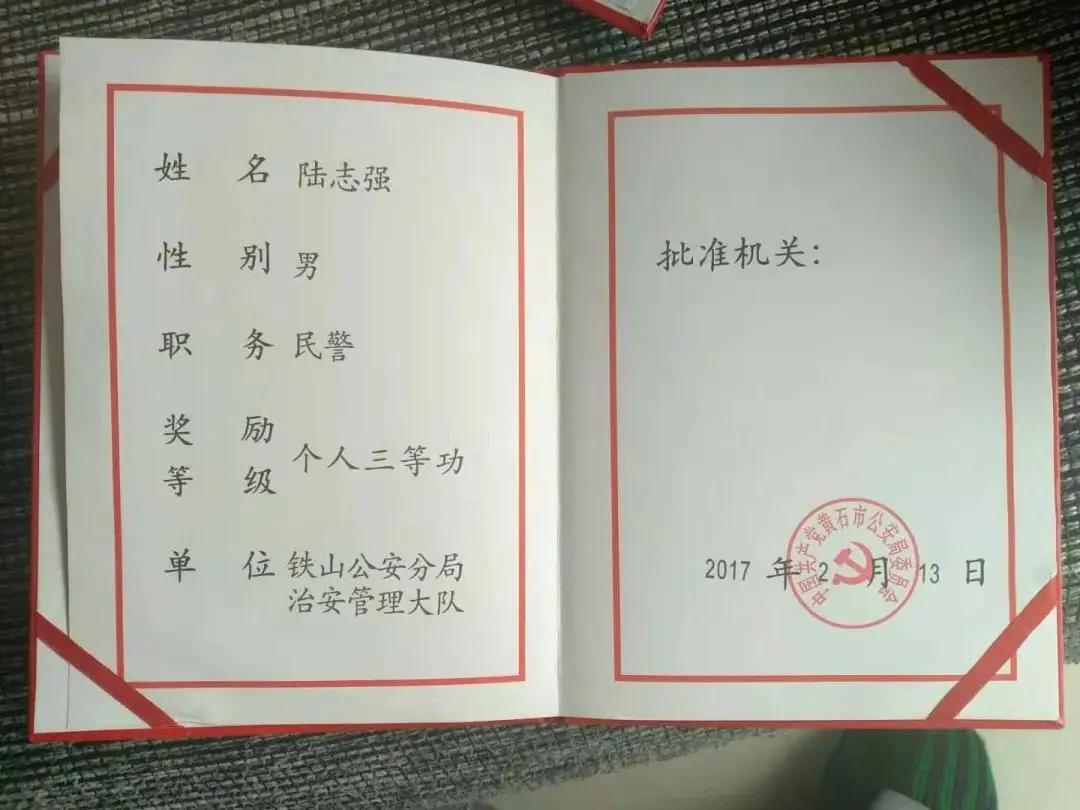 姓 名 陆志强
性 别 男
职 务 民警
奖 励
等 级 个人三等功
单 位 铁山公安分局
治安管理大队
批准机关：
中国共产党黄石市公安局委员会
2017 年 2 月 13 日